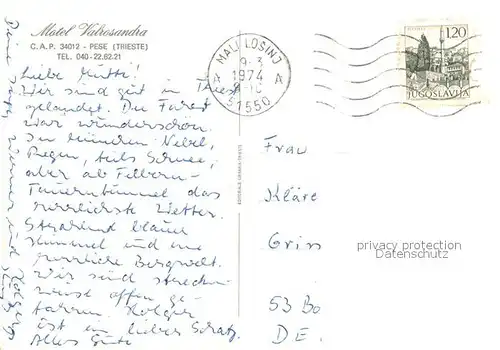 Motel Valrosandra
C.A.P. 34012 - PESE (TRIESTE)
TEL. 040-22.62.21
Liebe Mutti!
Wir sind gut in Triest
gelandet. Die Fahrt
war wunderschön.
In München Nebel,
Regen, teils Schnee,
aber ab Felbern-
Tauerntunnel das
herrlichste Wetter.
Strahlend blauer
Himmel und eine
herrliche Bergwelt.
Wir sind strecken-
weise offen ge-
fahren. Holger
ist ein lieber Schatz.
Alles Gute
Deine
Werner und Holger
MALI LOŠINJ
1974
51550
1.20
JUGOSLAVIJA
Frau
Kläre
53 Bo
D.E.
privacy protection
Datenschutz